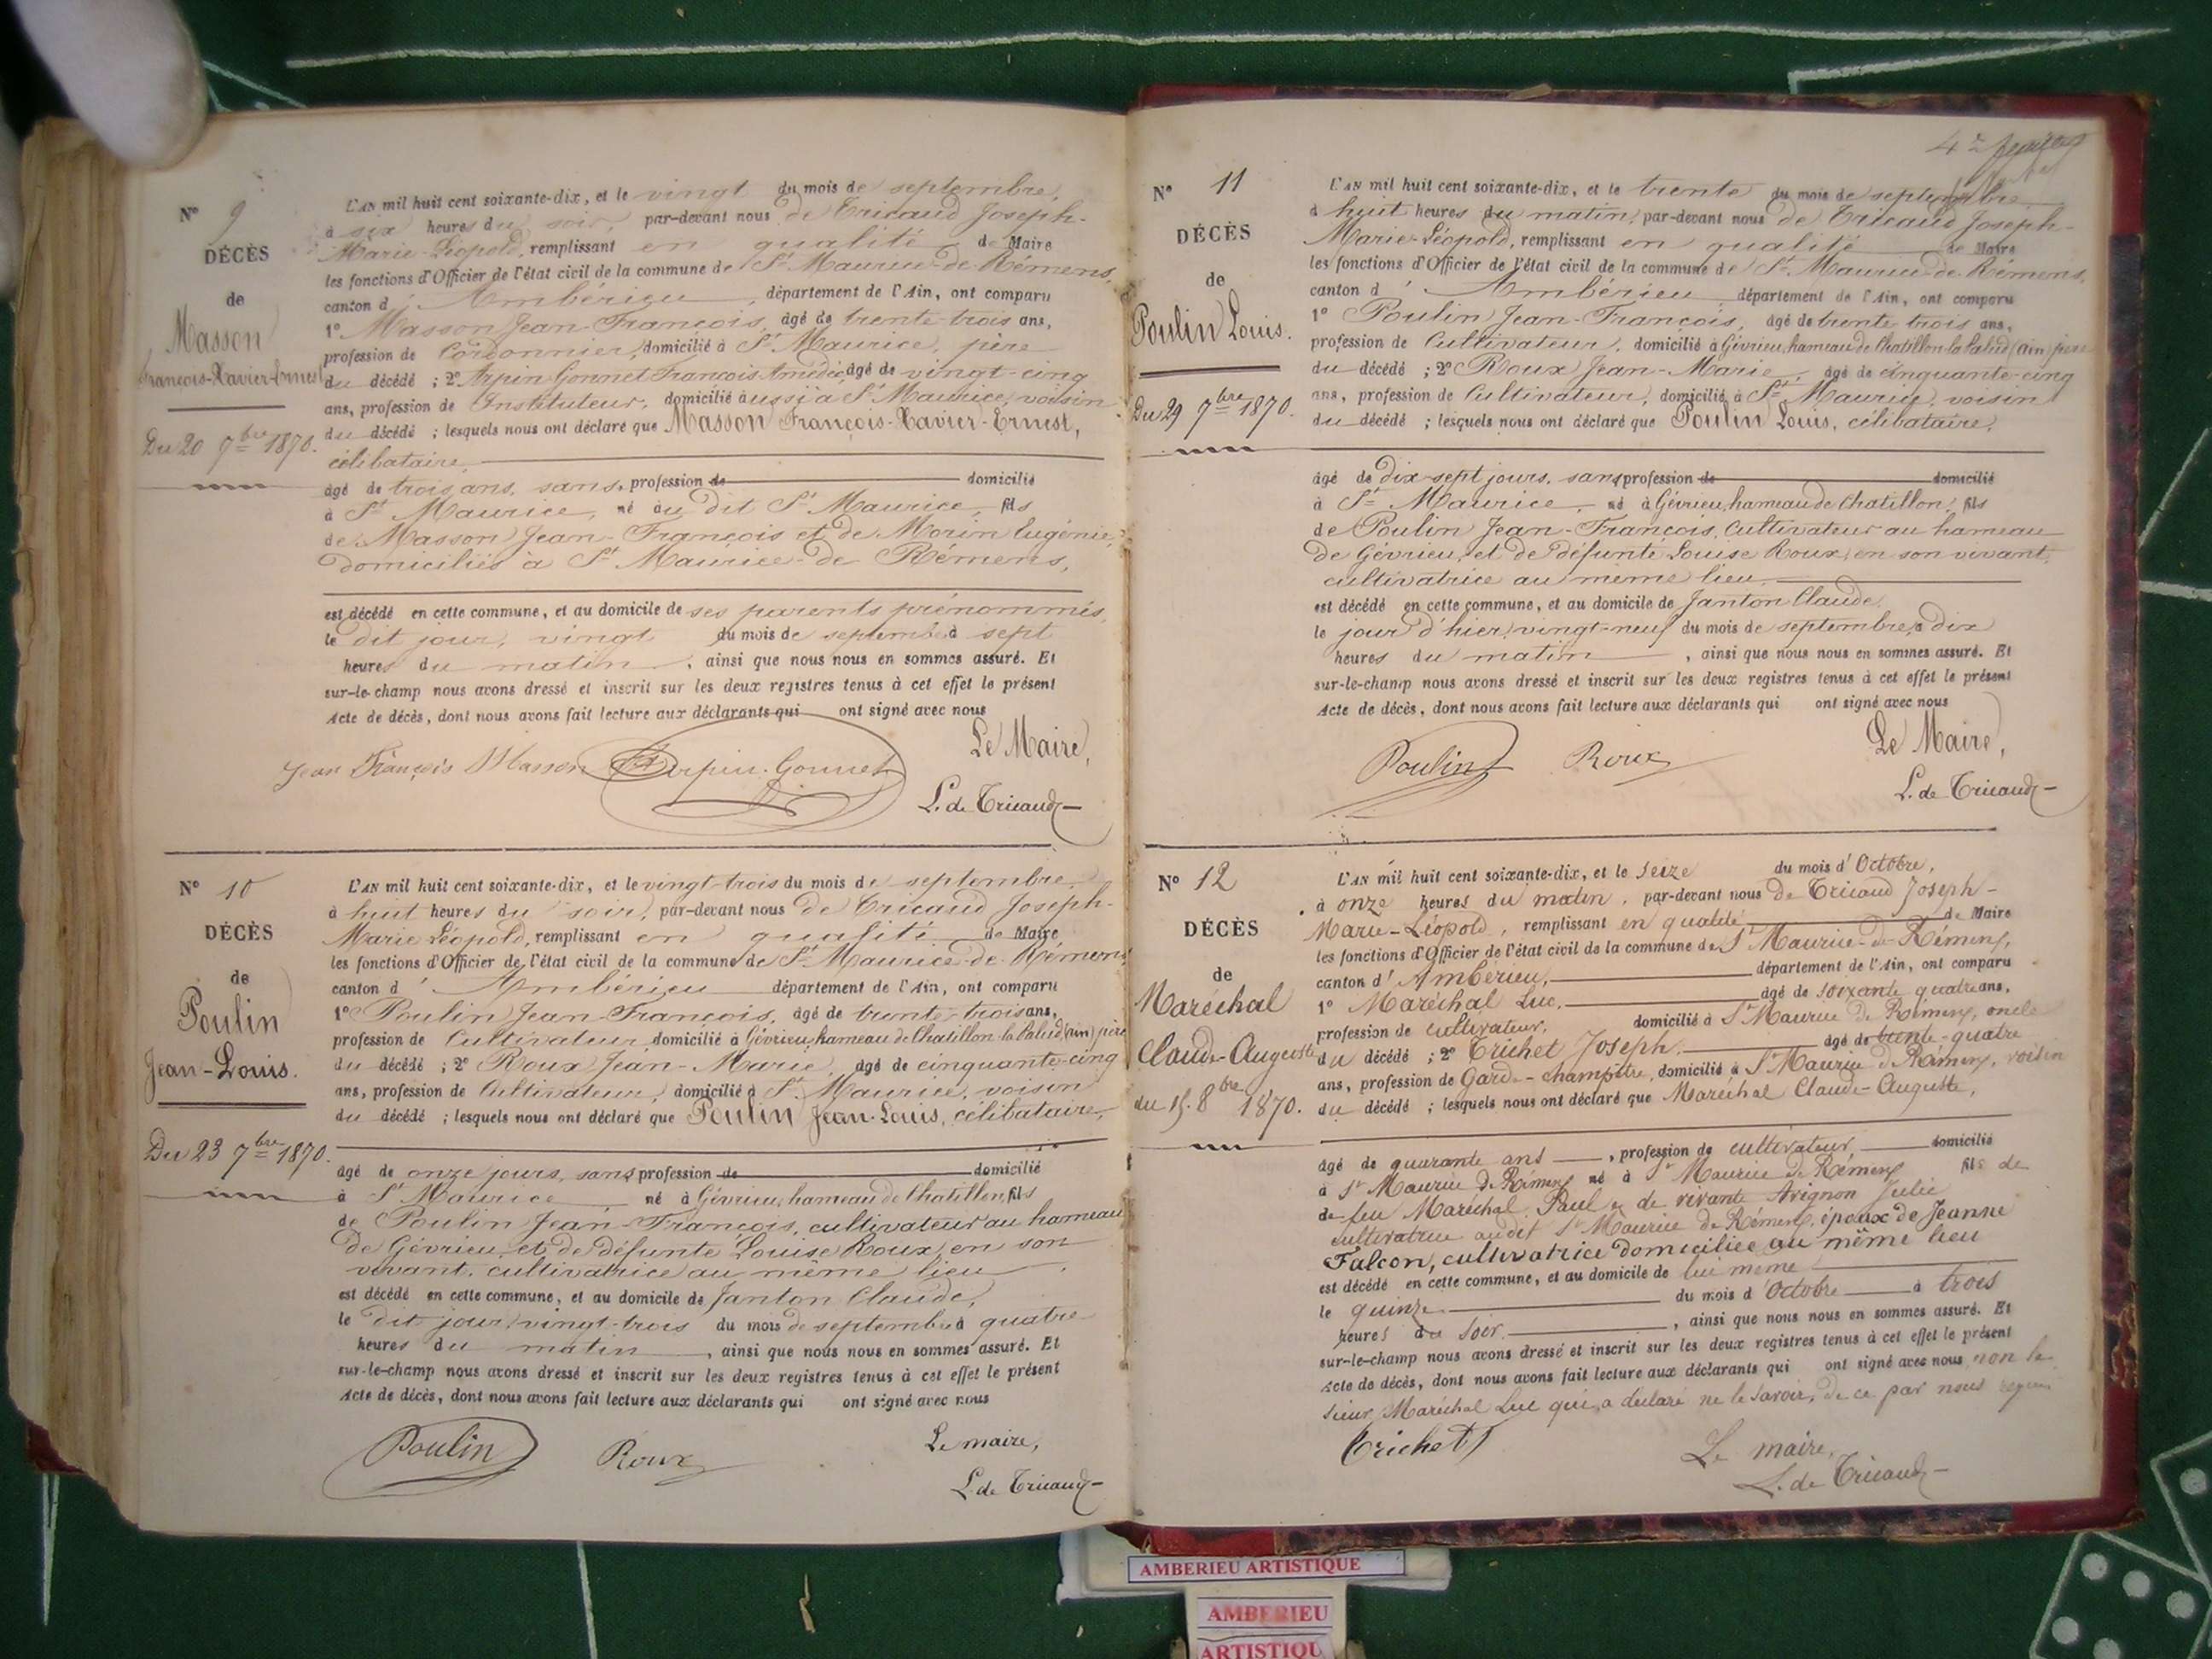 N° 9
DÉCÈS
de
Masson
François-Xavier-Ernest
Du 20 7bre 1870.
L'AN mil huit cent soixante-dix, et le vingt du mois de septembre,
à six heures du soir, par-devant nous de Tricaud Joseph-
Marie-Léopold, remplissant en qualité de Maire
les fonctions d'Officier de l'état civil de la commune de St Maurice-de-Rémens,
canton d'Ambérieu, département de l'Ain, ont comparu
1° Masson Jean-François, âgé de trente-trois ans,
profession de Cordonnier, domicilié à St Maurice, père
du décédé ; 2° Arpin Gonnet François Amédée, âgé de vingt-cinq
ans, profession de Instituteur, domicilié aussi à St Maurice, voisin
du décédé ; lesquels nous ont déclaré que Masson François-Xavier-Ernest,
célibataire,
âgé de trois ans, sans profession de domicilié
à St Maurice, né au dit St Maurice, fils
de Masson Jean-François et de Morin Eugénie,
domiciliés à St Maurice-de Rémens,
est décédé en cette commune, et au domicile de ses parents prénommés,
le dit jour, vingt du mois de septembre à sept
heures du matin, ainsi que nous nous en sommes assuré. Et
sur-le-champ nous avons dressé et inscrit sur les deux registres tenus à cet effet le présent
Acte de décès, dont nous avons fait lecture aux déclarants qui ont signé avec nous
Le Maire,
Jean François Masson Arpin-Gonnet
L. de Tricaud
N° 10
DÉCÈS
de
Poulin
Jean-Louis.
Du 23 7bre 1870.
L'AN mil huit cent soixante-dix, et le vingt-trois du mois de septembre,
à huit heures du soir, par-devant nous de Tricaud Joseph-
Marie-Léopold, remplissant en qualité de Maire
les fonctions d'Officier de l'état civil de la commune de St Maurice-de-Rémens,
canton d'Ambérieu département de l'Ain, ont comparu
1° Poulin Jean-François, âgé de trente-trois ans,
profession de Cultivateur, domicilié à Gévrieu, hameau de Chatillon-la-Palud (ain) père
du décédé ; 2° Roux Jean-Marie, âgé de cinquante-cinq
ans, profession de Cultivateur, domicilié à St Maurice, voisin
du décédé ; lesquels nous ont déclaré que Poulin Jean-Louis, célibataire,
âgé de onze jours, sans profession de domicilié
à St Maurice né à Gévrieu, hameau de Chatillon, fils
de Poulin Jean-François, cultivateur au hameau
de Gévrieu, et de défunte Louise Roux, en son
vivant, cultivatrice au même lieu.
est décédé en cette commune, et au domicile de Janton Claude,
le dit jour, vingt-trois du mois de septembre à quatre
heures du matin, ainsi que nous nous en sommes assuré. Et
sur-le-champ nous avons dressé et inscrit sur les deux registres tenus à cet effet le présent
Acte de décès, dont nous avons fait lecture aux déclarants qui ont signé avec nous
Poulin Roux
Le maire,
L. de Tricaud
N° 11
DÉCÈS
de
Poulin Louis.
Du 29 7bre 1870.
L'AN mil huit cent soixante-dix, et le trente du mois de septembre,
à huit heures du matin, par-devant nous de Tricaud Joseph-
Marie-Léopold, remplissant en qualité de Maire
les fonctions d'Officier de l'état civil de la commune de St Maurice-de-Rémens,
canton d'Ambérieu, département de l'Ain, ont comparu
1° Poulin Jean-François, âgé de trente-trois ans,
profession de Cultivateur, domicilié à Gévrieu, hameau de Chatillon-la-Palud (ain) père
du décédé ; 2° Roux Jean-Marie, âgé de cinquante-cinq
ans, profession de Cultivateur, domicilié à St Maurice, voisin
du décédé ; lesquels nous ont déclaré que Poulin Louis, célibataire,
âgé de dix-sept jours, sans profession de domicilié
à St Maurice, né à Gévrieu, hameau de Chatillon, fils
de Poulin Jean-François, Cultivateur au hameau
de Gévrieu, et de défunte Louise Roux, en son vivant,
cultivatrice au même lieu.
est décédé en cette commune, et au domicile de Janton Claude,
le jour d'hier, vingt-neuf du mois de septembre, à dix
heures du matin, ainsi que nous nous en sommes assuré. Et
sur-le-champ nous avons dressé et inscrit sur les deux registres tenus à cet effet le présent
Acte de décès, dont nous avons fait lecture aux déclarants qui ont signé avec nous
Poulin Roux
Le Maire,
L. de Tricaud
N° 12
DÉCÈS
de
Maréchal
Claude-Auguste
du 15 8bre 1870.
L'AN mil huit cent soixante-dix, et le seize du mois d'Octobre,
à onze heures du matin, par-devant nous De Tricaud Joseph-
Marie-Léopold, remplissant en qualité de Maire
les fonctions d'Officier de l'état civil de la commune de St Maurice-de-Rémens,
canton d'Ambérieu, département de l'Ain, ont comparu
1° Maréchal Luc, âgé de soixante quatre ans,
profession de cultivateur, domicilié à St Maurice De Rémens, oncle
du décédé ; 2° Trichet Joseph, âgé de trente-quatre
ans, profession de Garde-champêtre, domicilié à St Maurice de Rémens, voisin
du décédé ; lesquels nous ont déclaré que Maréchal Claude-Auguste,
âgé de quarante ans, profession de cultivateur, domicilié
à St Maurice De Rémens né à St Maurice de Rémens fils de
de feu Maréchal Paul & de vivante Avignon Julie
cultivatrice audit St Maurice de Rémens, époux de Jeanne
Falcon, cultivatrice domiciliée au même lieu
est décédé en cette commune, et au domicile de lui même
le quinze du mois d'Octobre à trois
heures du soir, ainsi que nous nous en sommes assuré. Et
sur-le-champ nous avons dressé et inscrit sur les deux registres tenus à cet effet le présent
Acte de décès, dont nous avons fait lecture aux déclarants qui ont signé avec nous non le
sieur Maréchal Luc qui a déclaré ne le savoir, de ce par nous requis
Trichet
Le maire,
L. de Tricaud
AMBERIEU ARTISTIQUE
AMBERIEU
ARTISTIQU